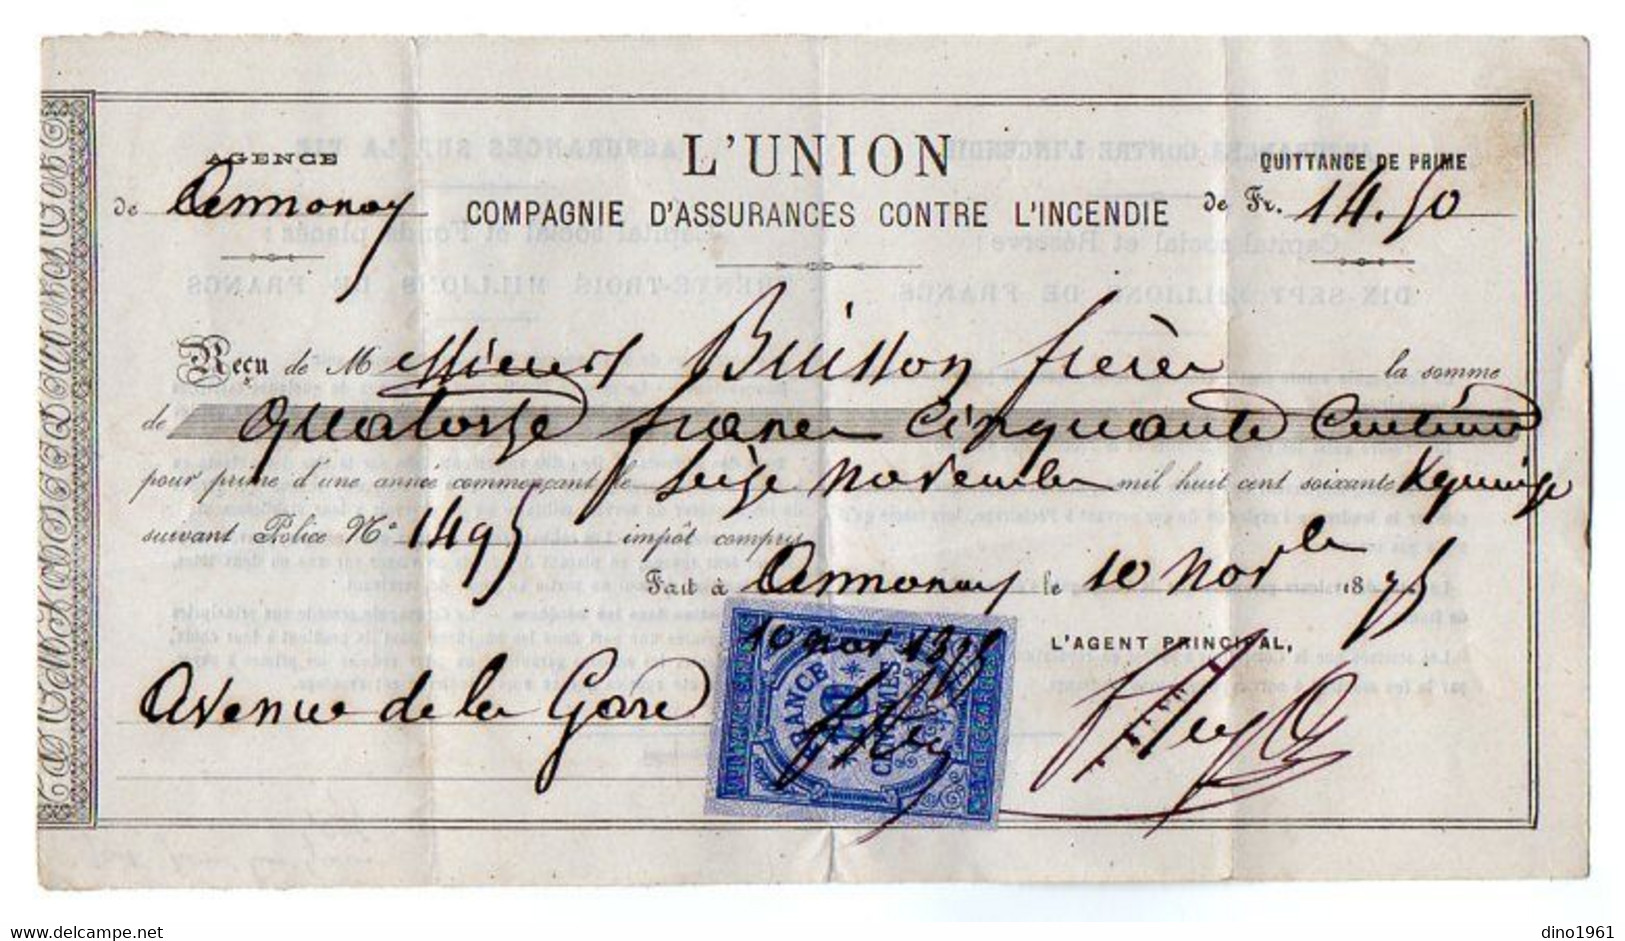 AGENCE
de Annonay
L'UNION
COMPAGNIE D'ASSURANCES CONTRE L'INCENDIE
QUITTANCE DE PRIME
de Fr. 14.50
Reçu de Messieurs Buisson frères la somme
de Quatorze francs cinquante centimes
pour prime d'une année commençant le seize novembre mil huit cent soixante & quinze
suivant Police N° 1495 impôt compris
Fait à Annonay le 10 Novbre 1875
L'AGENT PRINCIPAL,
Avenue de la Gare
10 nov 1875
FRANCE
10
CENTIMES
www.delcampe.net
dino1961